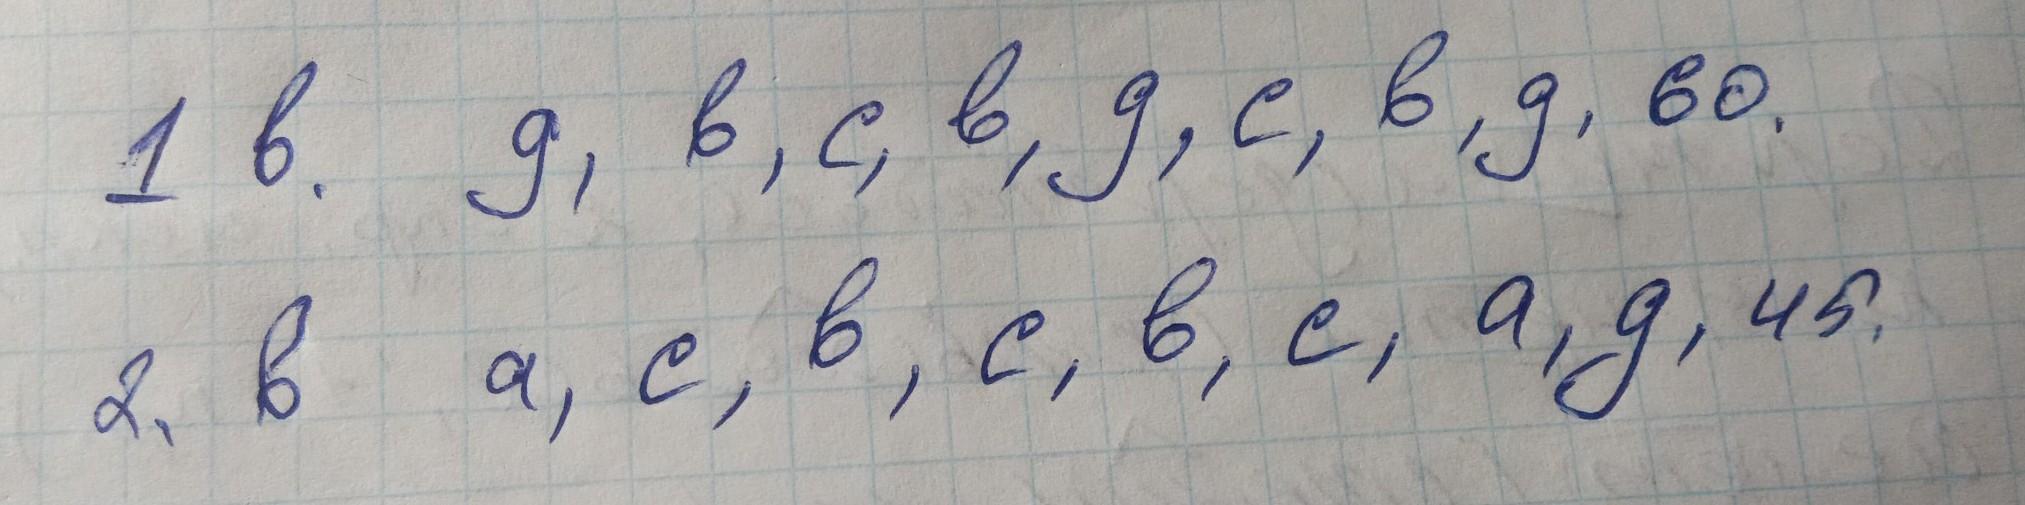 1 в. д, в, с, в, д, с, в, д, 60.
2. в а, с, в, с, в, с, а, д, 45.